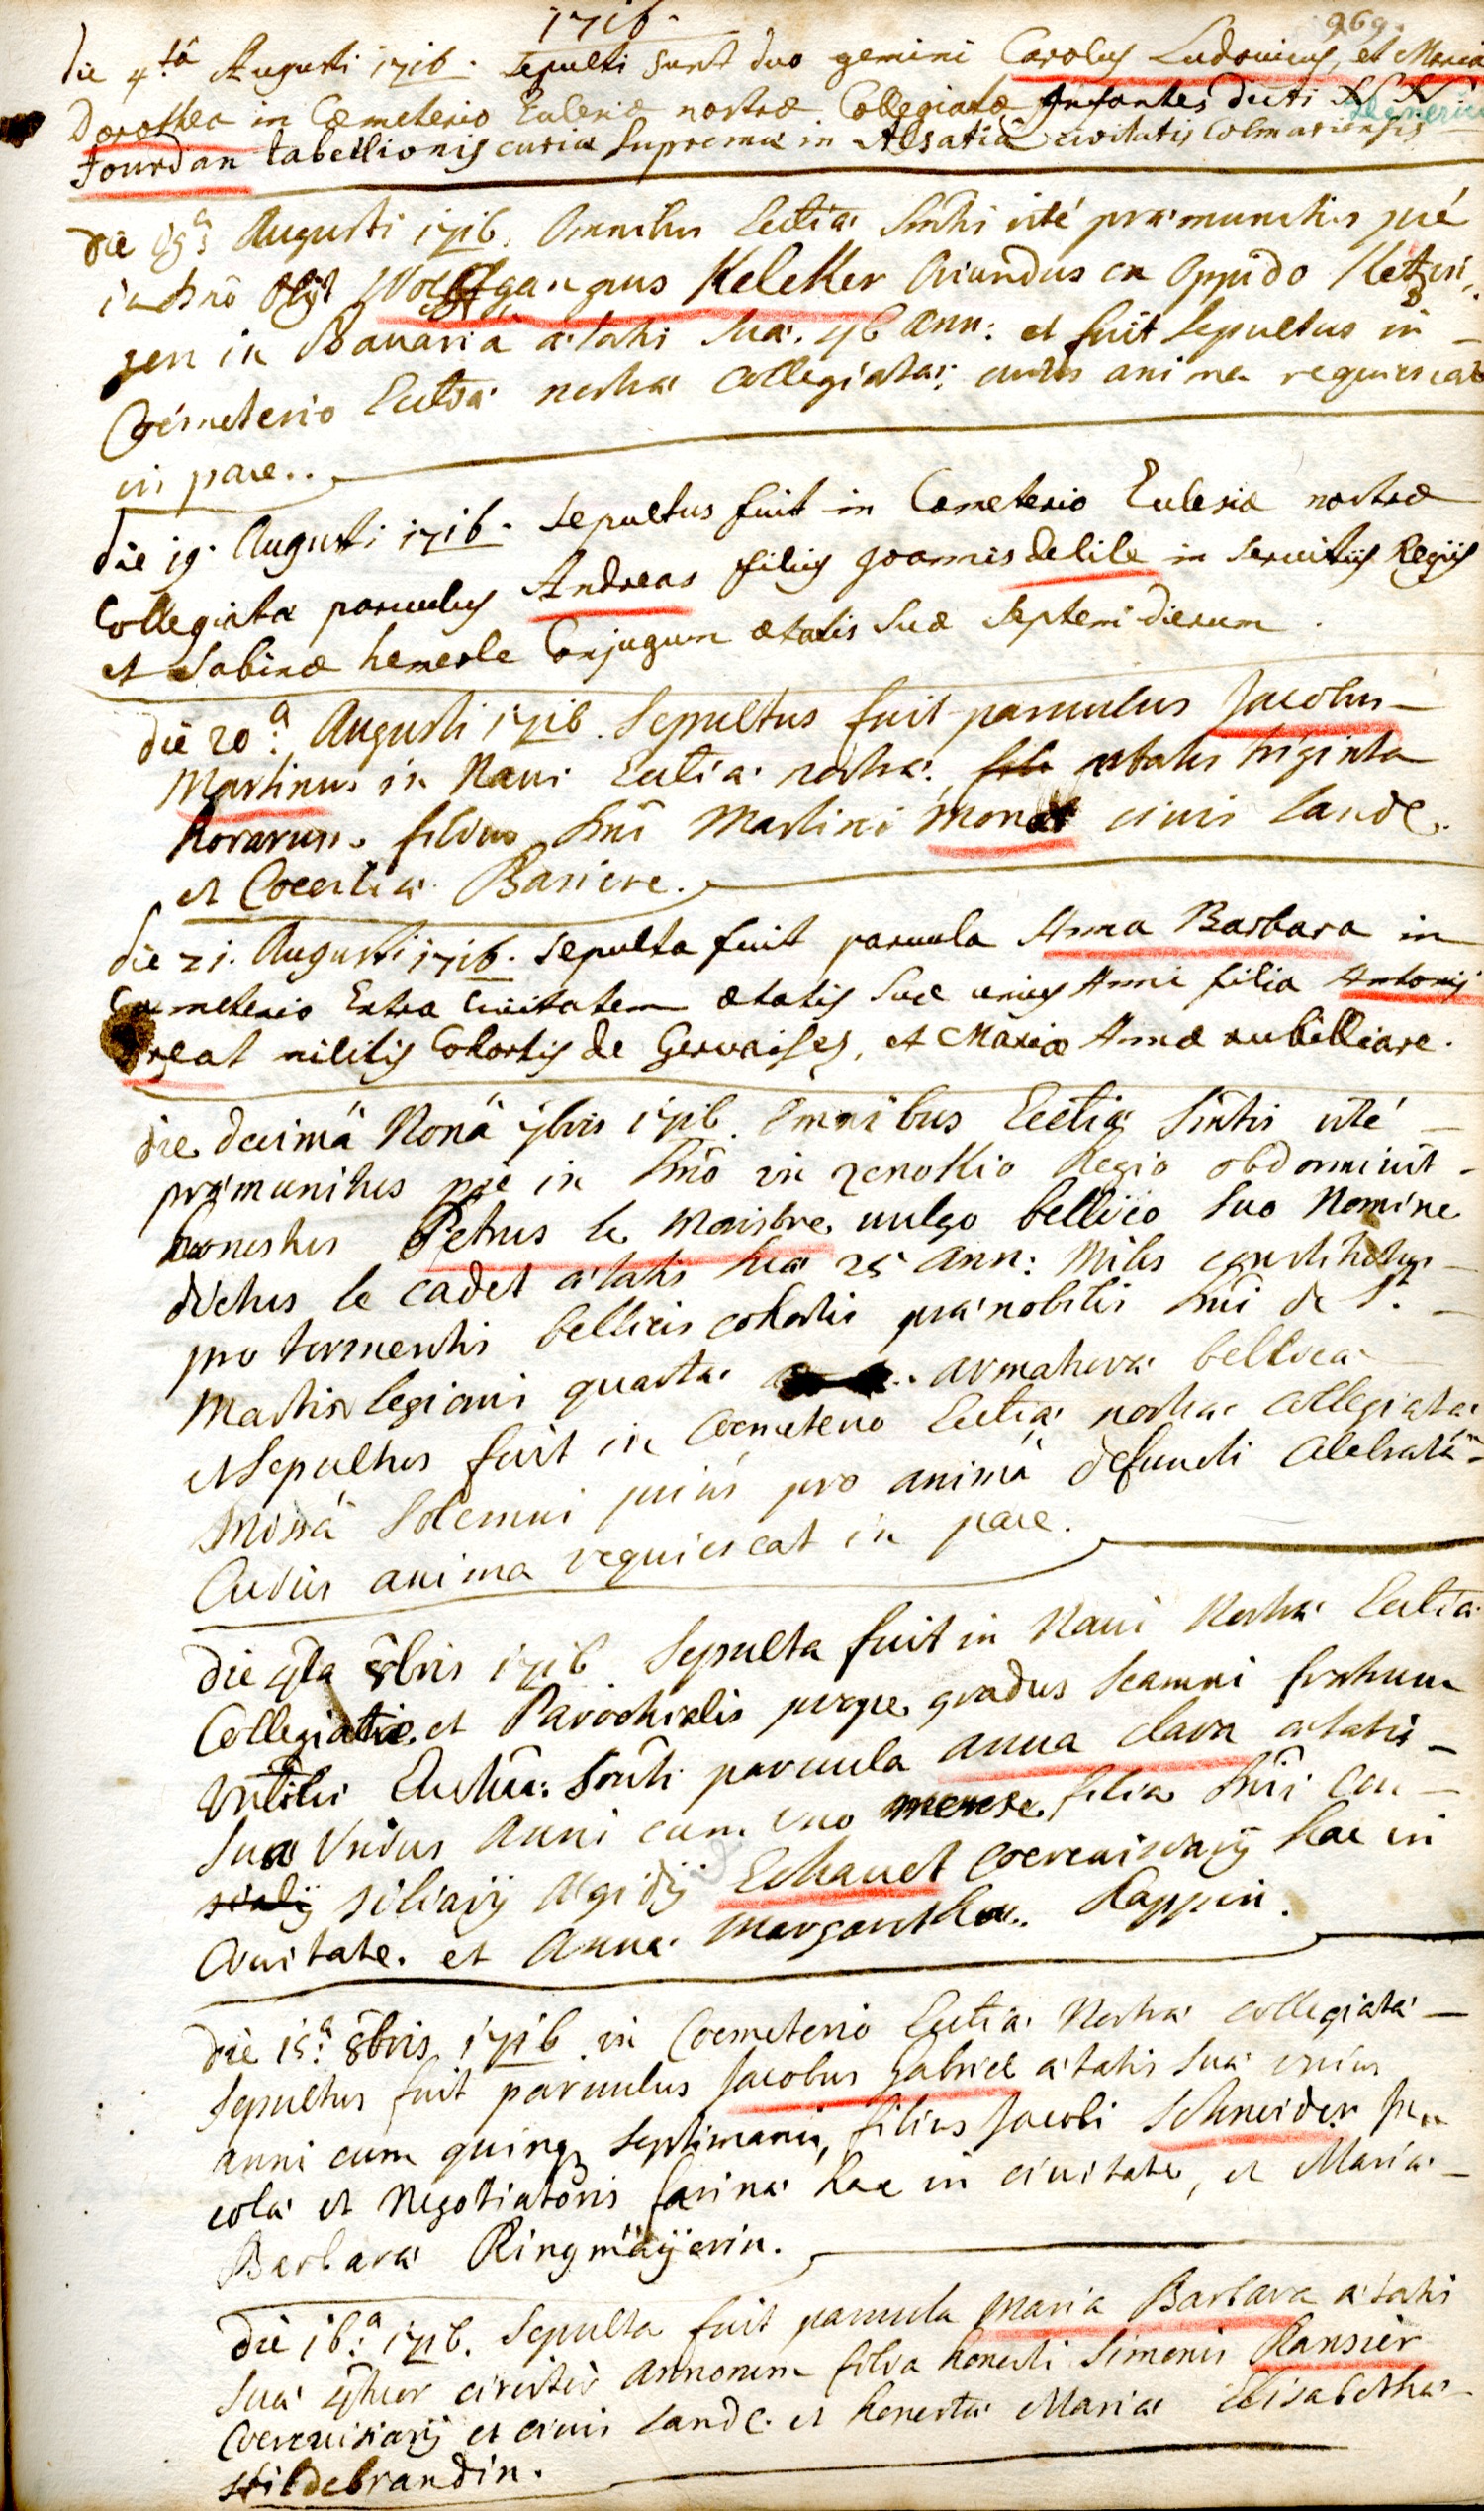 1716.
969.
die 4.tâ Augusti 1716. sepulti sunt duo gemini Carolus Ludovicus, et Maria
Dorothea in Cœmeterio Eclesiæ nostræ Collegiatæ Infantes dicti N. N.
Jourdan tabellionis curiæ Supremæ in Alsatiâ civitatis Colmariensis
die Augusti 1716. Omnibus Ecctiæ Smtis rité præmunitus pié
in dnô obijt Wolffgangus Kelcker Oriundus ex Oppido
gen in Bavaria ætatis suæ. 46 ann: et fuit sepultus in
Coemeterio Ecctiæ nostræ Collegiatæ; cuius anima requiescat
in pace..
die 19. Augusti 1716. Sepultus fuit in Cœmeterio Eclesiæ nostræ
Collegiatæ parvulus Andreas filius Joannis delile in servitiis Regiis
et Sabinæ hemerle Conjugum ætatis suæ septem dierum.
die 20.a Augusti 1716. Sepultus fuit parvulus Jacobus
Martinus in Navi Ecctiæ nostræ. ætatis triginta
horarum. filius dni Martini civis Landæ.
et Coeciliæ Basiere.
die 21. Augusti 1716. sepulta fuit parvula Anna Barbara in
Cœmeterio Extra Civitatem ætatis suæ unius Anni filia Antonij
militis Cohortis de Gervaises, et Mariæ Annæ rubilliare.
die decimâ Nonâ 7bris 1716. Omnibus Ecctiæ Smtis rité
præmunitus pie in dnô in Regio obdormivit
honestus Petrus le Maistre vulgo bellico suo Nomine
dictus le cadet ætatis suæ 25 ann: Miles constitutus
pro tormentis bellicis cohortis prænobilis dni de St.
Martin legionis quartæ armaturæ bellicæ
et Sepultus fuit in Coemeterio Ecctiæ nostræ collegiatæ
Missâ Solemni priùs pro animâ defuncti celebratâ
Cuius anima requiescat in pace.
Die 4ta 8bris 1716 Sepulta fuit in Navi Nostræ Ecctiæ
Collegiatæ et Parochialis prope gradus scamni fratrum
parvula anna clara ætatis
suæ Unius Anni cum uno mense. filia dni Con-
siliarij Ægidij Echauet Coerevisiarij hac in
Civitate. et Annæ Margarethæ. Kappin.
Die 15.a 8bris 1716. in Coemeterio Ecctiæ Nostræ collegiatæ
Sepultus fuit parvulus Jacobus Gabriel ætatis suæ unius
anni cum quinq septimanis, filius Jacobi Schneider In-
colæ et Negotiatoris farinæ hac in civitate, et Mariæ
Barbaræ Ringmäÿerin.
Die 16.a 1716. Sepulta fuit parvula Maria Barbara ætatis
suæ 4tuor circiter annorum filia honesti Simonis Ransier
Coerevisiarij et civis Landæ. et honestæ Mariæ Elisabethæ
Hildebrandin.